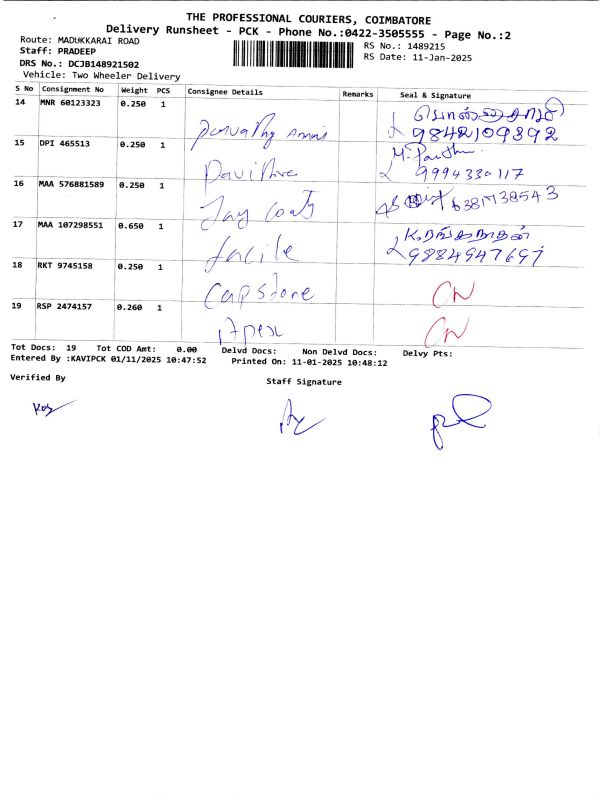 THE PROFESSIONAL COURIERS, COIMBATORE
Delivery Runsheet - PCK - Phone No.:0422-3505555 - Page No.:2
Route: MADUKKARAI ROAD
RS No.: 1489215
Staff: PRADEEP
RS Date: 11-Jan-2025
DRS No.: DCJB148921502
Vehicle: Two Wheeler Delivery
S No Consignment No Weight PCS Consignee Details Remarks Seal & Signature
14 MNR 60123323 0.250 1
9842109892
15 DPI 465513 0.250 1 Pavithra
9994330117
16 MAA 576881589 0.250 1 Jay Coats 6381738543
17 MAA 107298551 0.650 1 facile க.ரங்கநாதன்
9884947697
18 RKT 9745158 0.250 1 Capstone CN
19 RSP 2474157 0.260 1 Apex CN
Tot Docs: 19 Tot COD Amt: 0.00 Delvd Docs: Non Delvd Docs: Delvy Pts:
Entered By :KAVIPCK 01/11/2025 10:47:52 Printed On: 11-01-2025 10:48:12
Verified By
Staff Signature